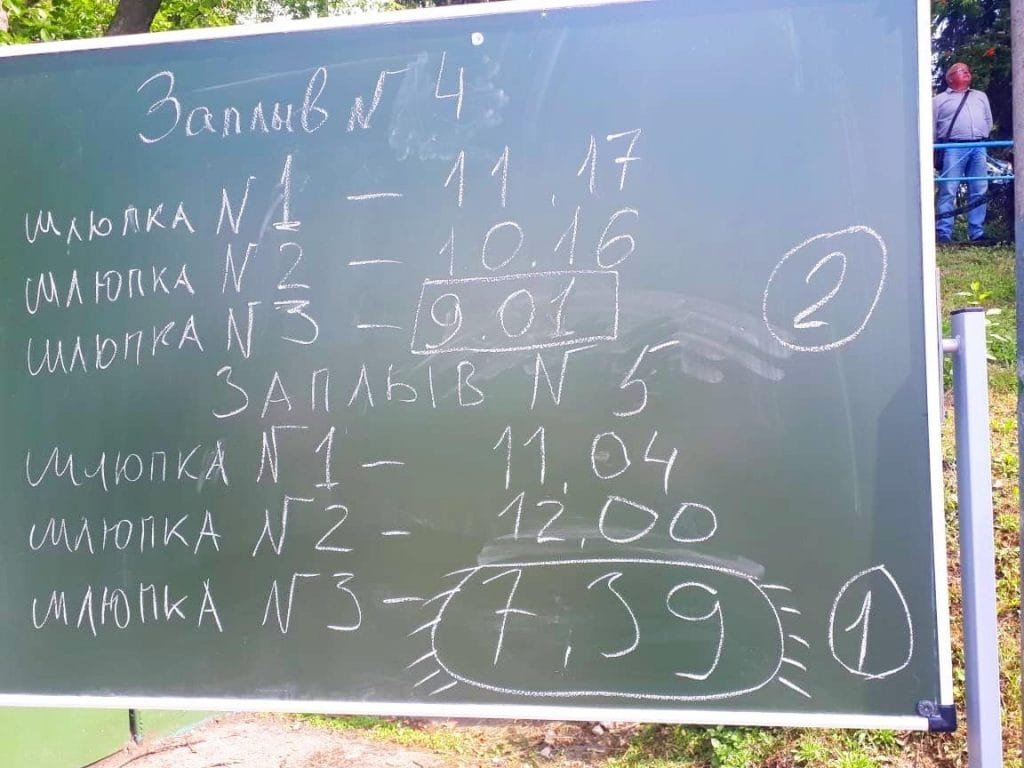 Заплыв № 4
шлюпка № 1 – 11.17
шлюпка № 2 – 10.16
шлюпка № 3 – 9.01
2
ЗАПЛЫВ № 5
шлюпка № 1 – 11,04
шлюпка № 2 – 12,00
шлюпка № 3 – 7,39
1